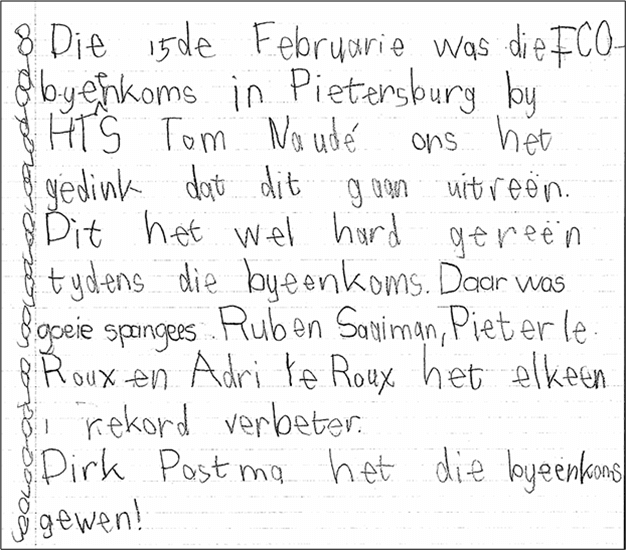 Die 15de Februarie was die FCO-
byeenkoms in Pietersburg by
HTS Tom Naudé ons het
gedink dat dit gaan uitreën.
Dit het wel hard gereën
tydens die byeenkoms. Daar was
goeie spangees. Ruben Saaiman, Pieter le.
Roux en Adri le Roux het elkeen
1 rekord verbeter.
Dirk Postma het die byeenkoms
gewen!